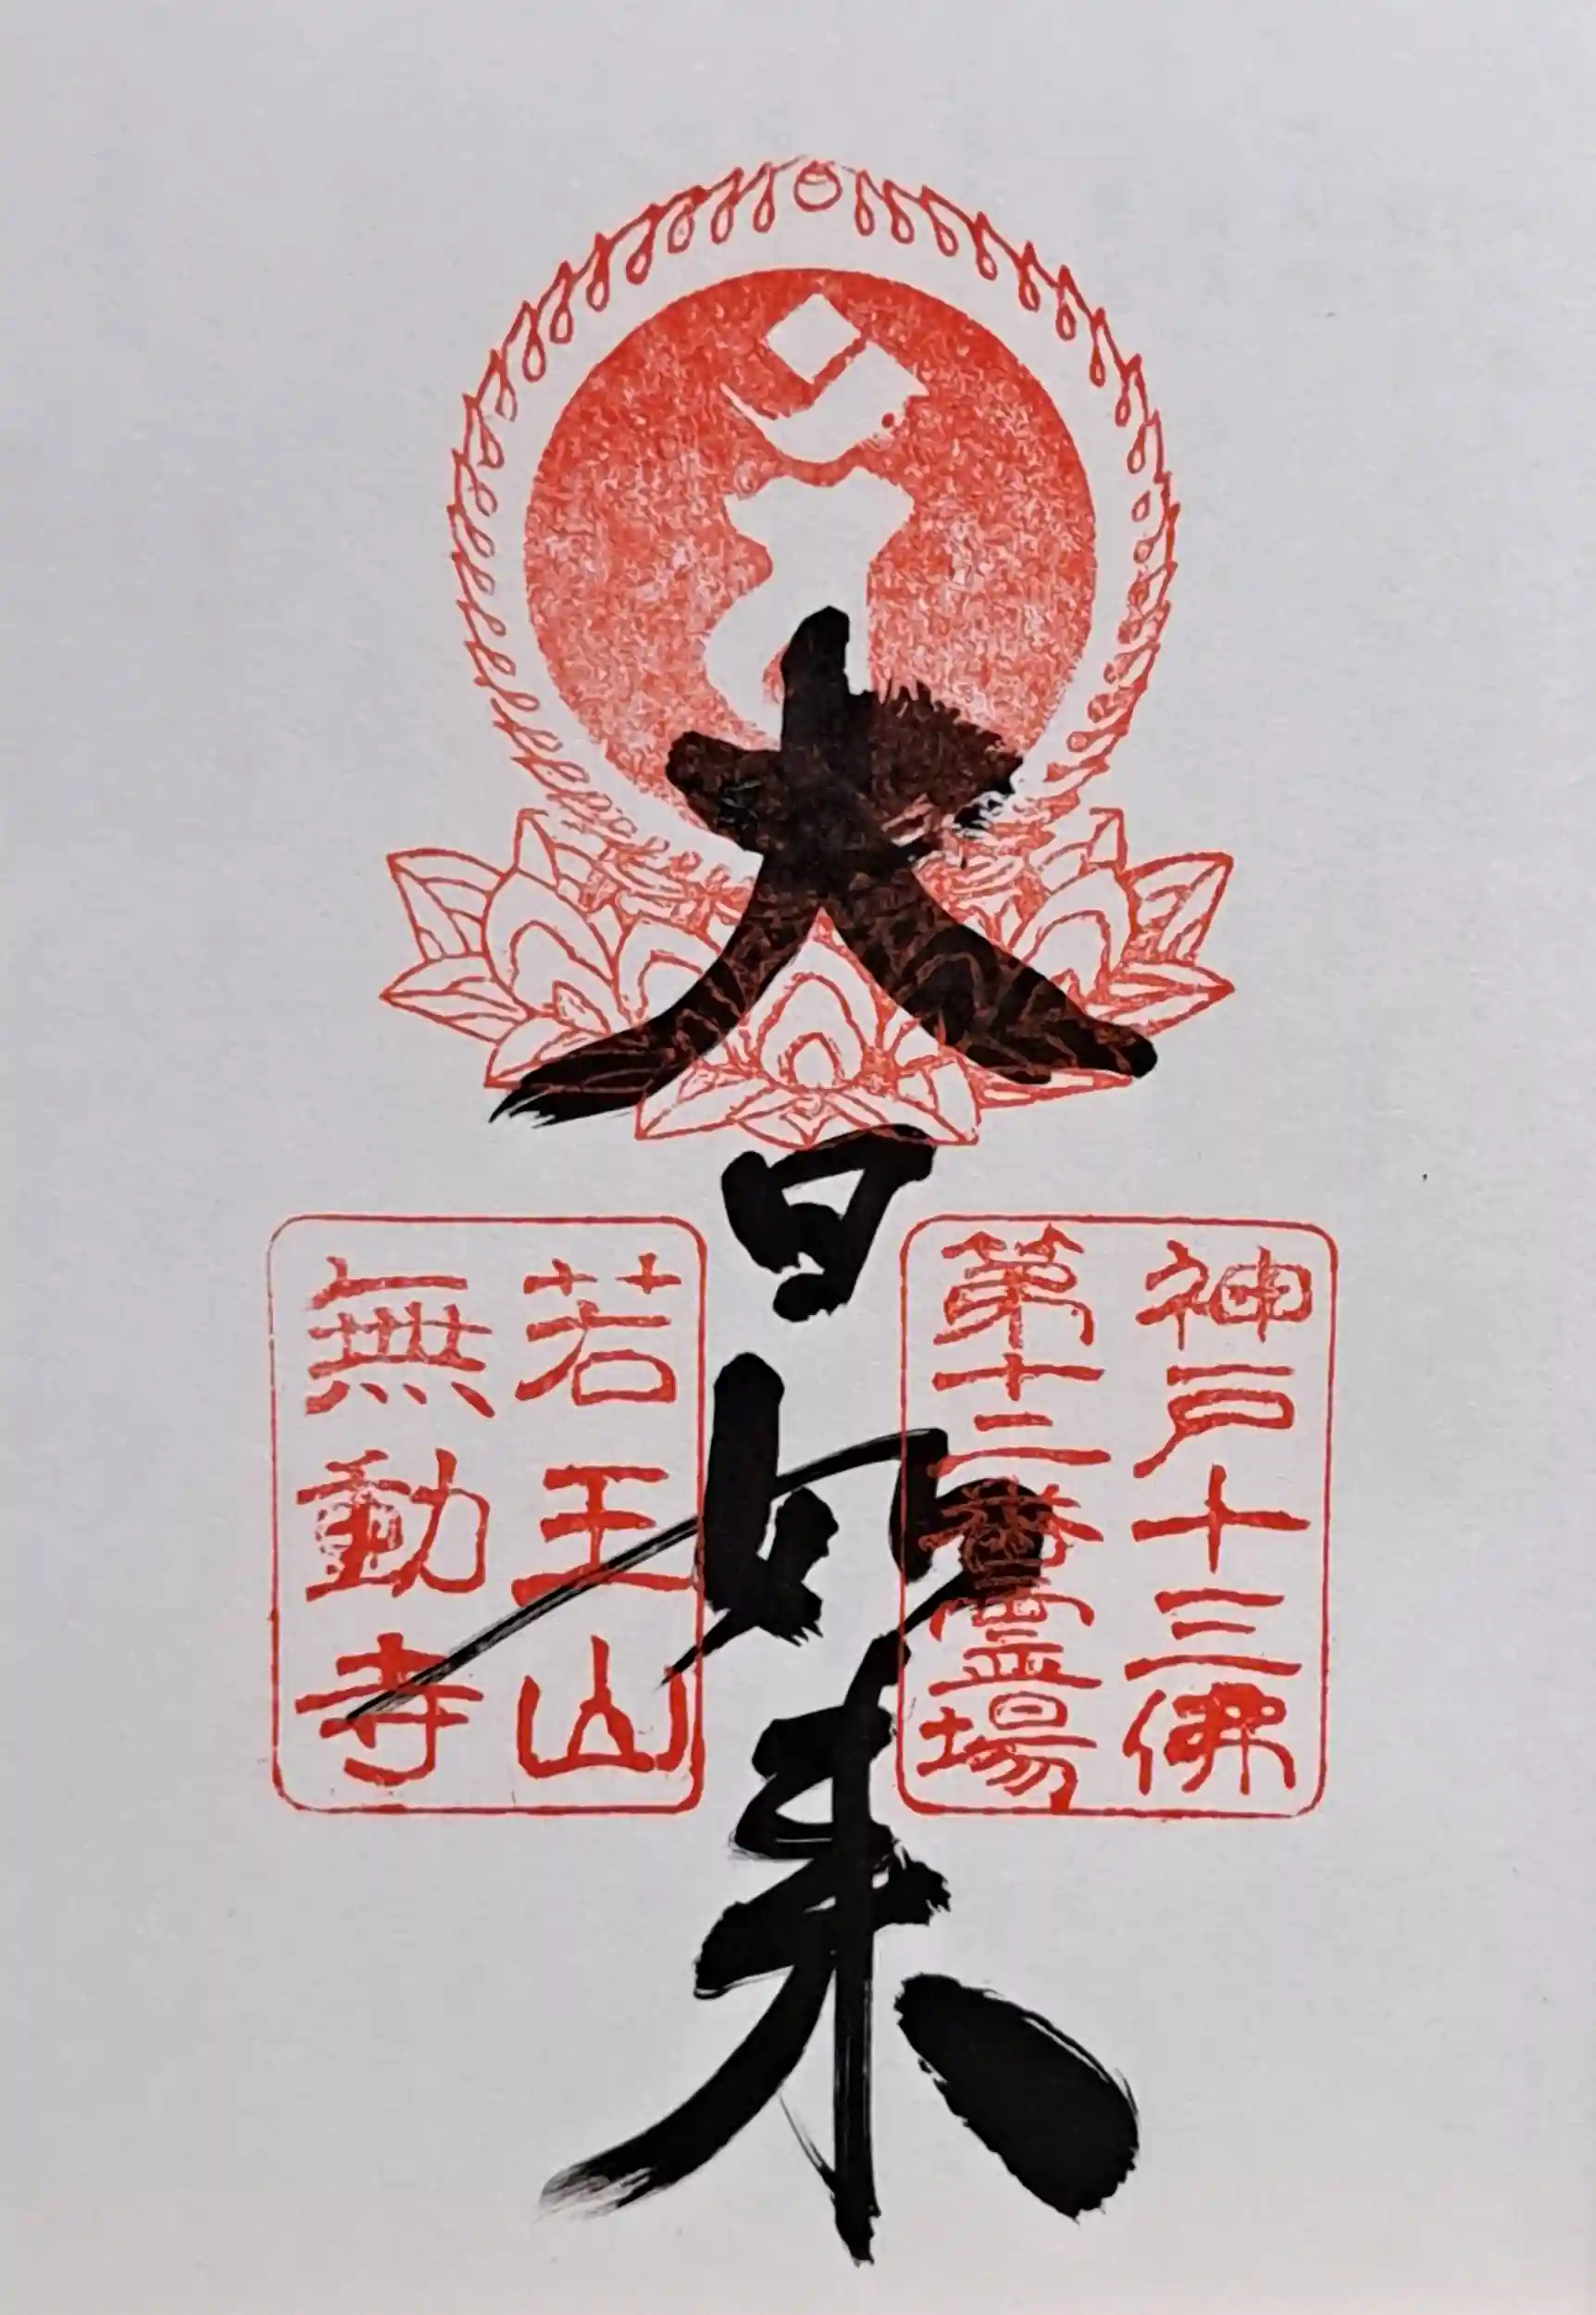 神戸十三佛
第十二番霊場
大日如来
若王山
無動寺